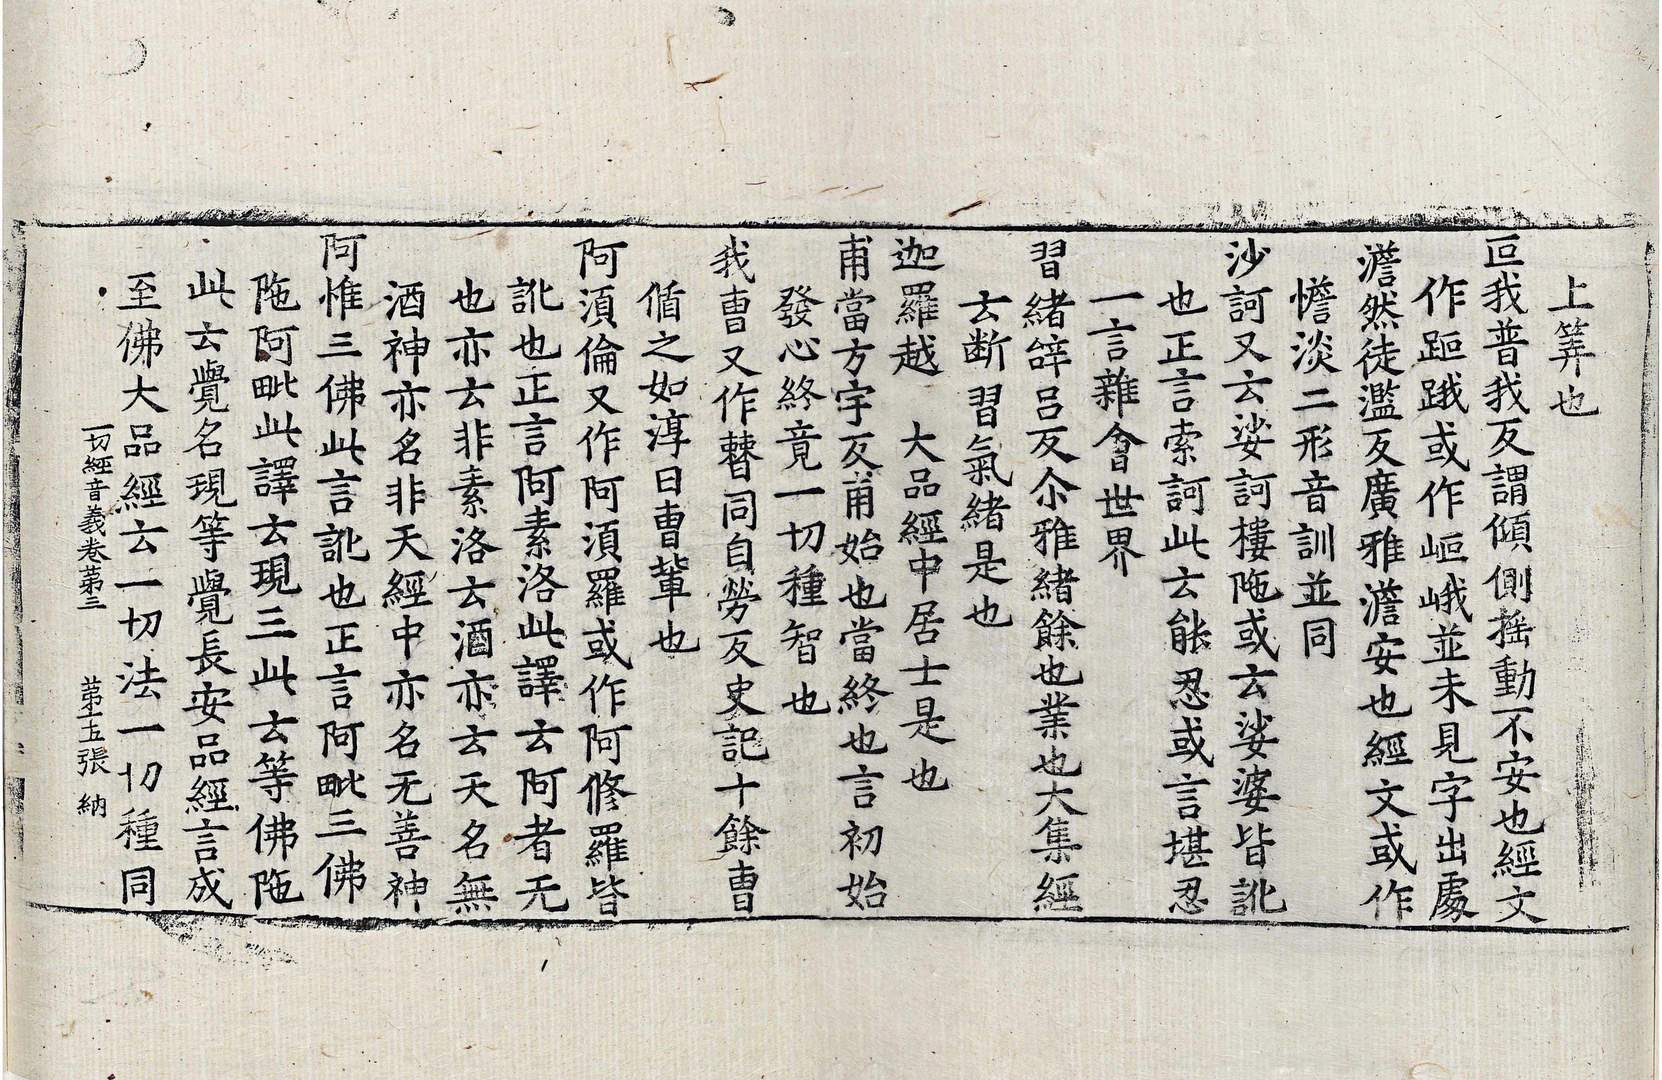 上筭也
叵我普我反謂傾側搖動不安也經文
作距䟰或作岠峨並未見字出處
澹然徒濫反廣雅澹安也經文或作
憺淡二形音訓並同
沙訶又云娑訶樓陁或云娑婆皆訛
也正言索訶此云能忍或言堪忍
一言雜會世界
習緒辝吕反尒雅緒餘也業也大集經
云断習氣緒是也
迦羅越　大品經中居士是也
甫當方宇反甫始也當終也言初始
發心終竟一切種智也
我曺又作𣍘同自勞反史記十餘曺
循之如淳曰曺輩也
阿須倫又作阿須羅或作阿修羅皆
訛也正言阿素洛此譯云阿者无
也亦云非素洛云酒亦云天名無
酒神亦名非天經中亦名无善神
阿惟三佛此言訛也正言阿毗三佛
陁阿毗此譯云現三此云等佛陁
此云覺名現等覺長安品經言成
至佛大品經云一切法一切種同
一切經音義卷苐三　苐十五張　納